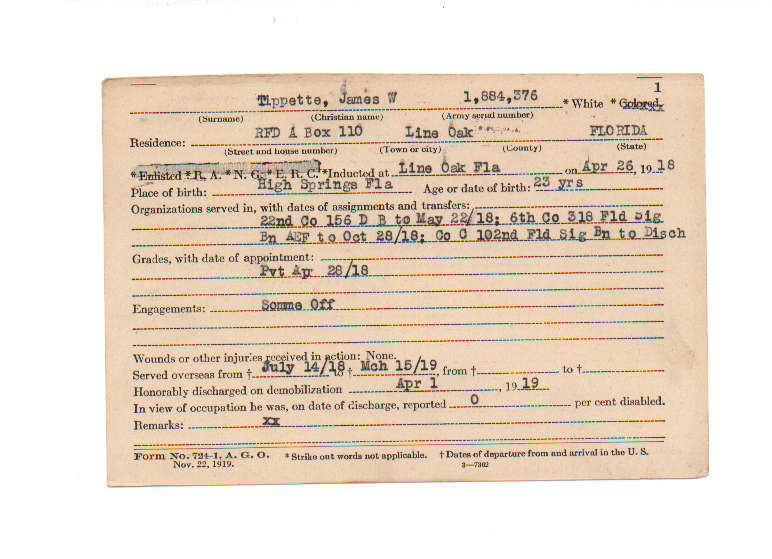 1
Tippette, James W 1,884,376 * White * Colored.
(Surname) (Christian name) (Army serial number)
Residence: RFD A Box 110 Line Oak FLORIDA
(Street and house number) (Town or city) (County) (State)
* Enlisted * R. A. * N. G. * E. R. C. * Inducted at Line Oak Fla on Apr 26, 1918
Place of birth: High Springs Fla Age or date of birth: 23 yrs
Organizations served in, with dates of assignments and transfers:
22nd Co 156 D B to May 22/18; 6th Co 318 Fld Sig
Bn AEF to Oct 28/18; Co C 102nd Fld Sig Bn to Disch
Grades, with date of appointment:
Pvt Apr 28/18
Engagements: Somme Off
Wounds or other injuries received in action: None.
Served overseas from † July 14/18 to † Mch 15/19, from † to †
Honorably discharged on demobilization Apr 1, 1919
In view of occupation he was, on date of discharge, reported 0 per cent disabled.
Remarks: xx
Form No. 724-1, A. G. O. * Strike out words not applicable. † Dates of departure from and arrival in the U. S.
Nov. 22, 1919. 3—7302